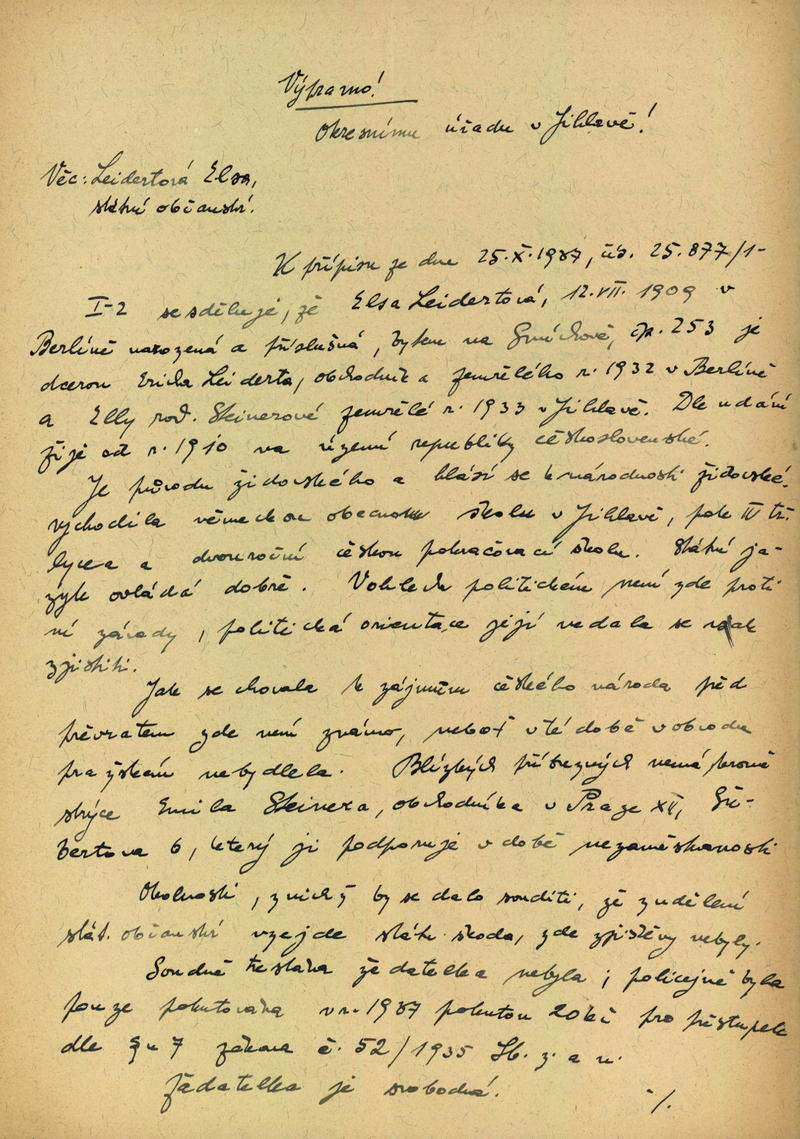 Výpravno!
Okresnímu úřadu v Jihlavě!
Věc: Leidertová Elsa,
státní občanství.
K přípisu ze dne 25.X.1937, čís. 25.877/1-
I-2 se sděluje, že Elsa Leidertová, 12.VII. 1909 v
Berlíně narozená a příslušná, bytem na Smíchově, čp. 253 je
dcerou Ericha Leiderta, obchodník a zemřelého r. 1932 v Berlíně
a Elly roz. Steinerové zemřelé r. 1933 v Jihlavě. Dle udání
žije od r. 1910 na území republiky československé.
Je původu židovského a hlásí se k národnosti židovské,
vychodila německou obecnou školu v Jihlavě, pak IV tř.
lycea a dvouroční českou pokračovací školu. Státní ja-
zyk ovládá dobře. Vohledu politickém není zde proti
ní závady, politická orientace její nedala se však
zjistiti.
Jak se chovala k zájmům českého národa před
převratem zde není známo, neboť v té době v obvodu
pražském nebydlela. Blízkých příbuzných nemá kromě
strýce Emila Steinera, obchodníka v Praze XII,
6, který ji podporuje v době nezaměstnanosti
Okolnosti, z nichž by se dalo souditi, že z udělení
stát. občanství vzejde státu škoda, zde zjištěny nebyly.
Soudně trestána žadatelka nebyla; policejně byla
pouze pokutována v r. 1937 pokutou 20 Kč pro přestupek
dle §u 7 zákona č. 52/1935 Sb. z. a n.
Žadatelka je svobodná.
./.